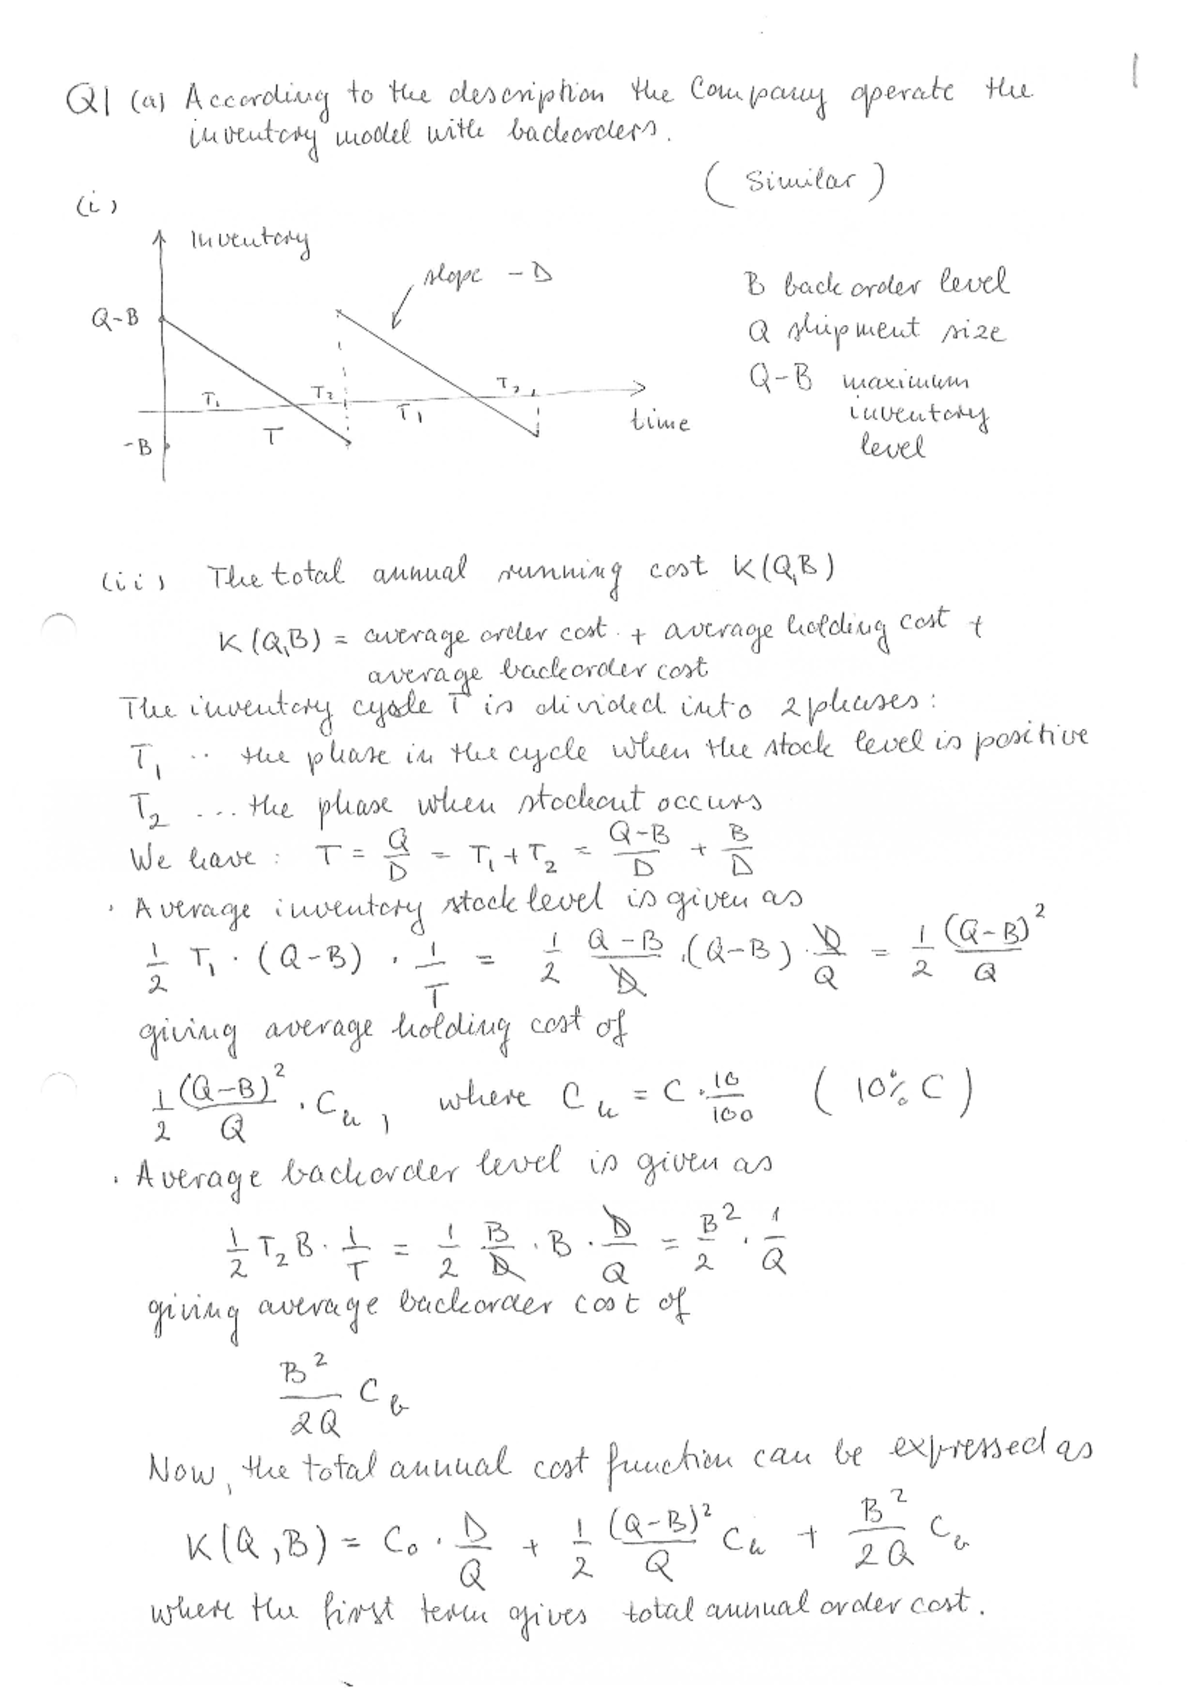 1
Q1 (a) According to the description the Company operate the
inventory model with backorders.
(similar)
(i)
Inventory
slope -D
Q-B
B back order level
Q shipment size
Q-B maximum
inventory
level
T₁ T₂ T₁ T₂
time
T
-B
(ii) The total annual running cost K(Q,B)
K(Q,B) = average order cost + average holding cost +
average backorder cost
The inventory cycle T is divided into 2 phases:
T₁ .. the phase in the cycle when the stock level is positive
T₂ ... the phase when stockout occurs
We have: T = Q/D = T₁ + T₂ = (Q-B)/D + B/D
· Average inventory stock level is given as
1/2 T₁ · (Q-B) · 1/T = 1/2 (Q-B)/D · (Q-B) · D/Q = 1/2 (Q-B)²/Q
giving average holding cost of
1/2 (Q-B)²/Q · C_h, where C_h = C · 10/100 (10% C)
· Average backorder level is given as
1/2 T₂ B · 1/T = 1/2 B/D · B · D/Q = B²/2 · 1/Q
giving average backorder cost of
B²/2Q C_b
Now, the total annual cost function can be expressed as
K(Q,B) = C₀ · D/Q + 1/2 (Q-B)²/Q C_h + B²/2Q C_b
where the first term gives total annual order cost.